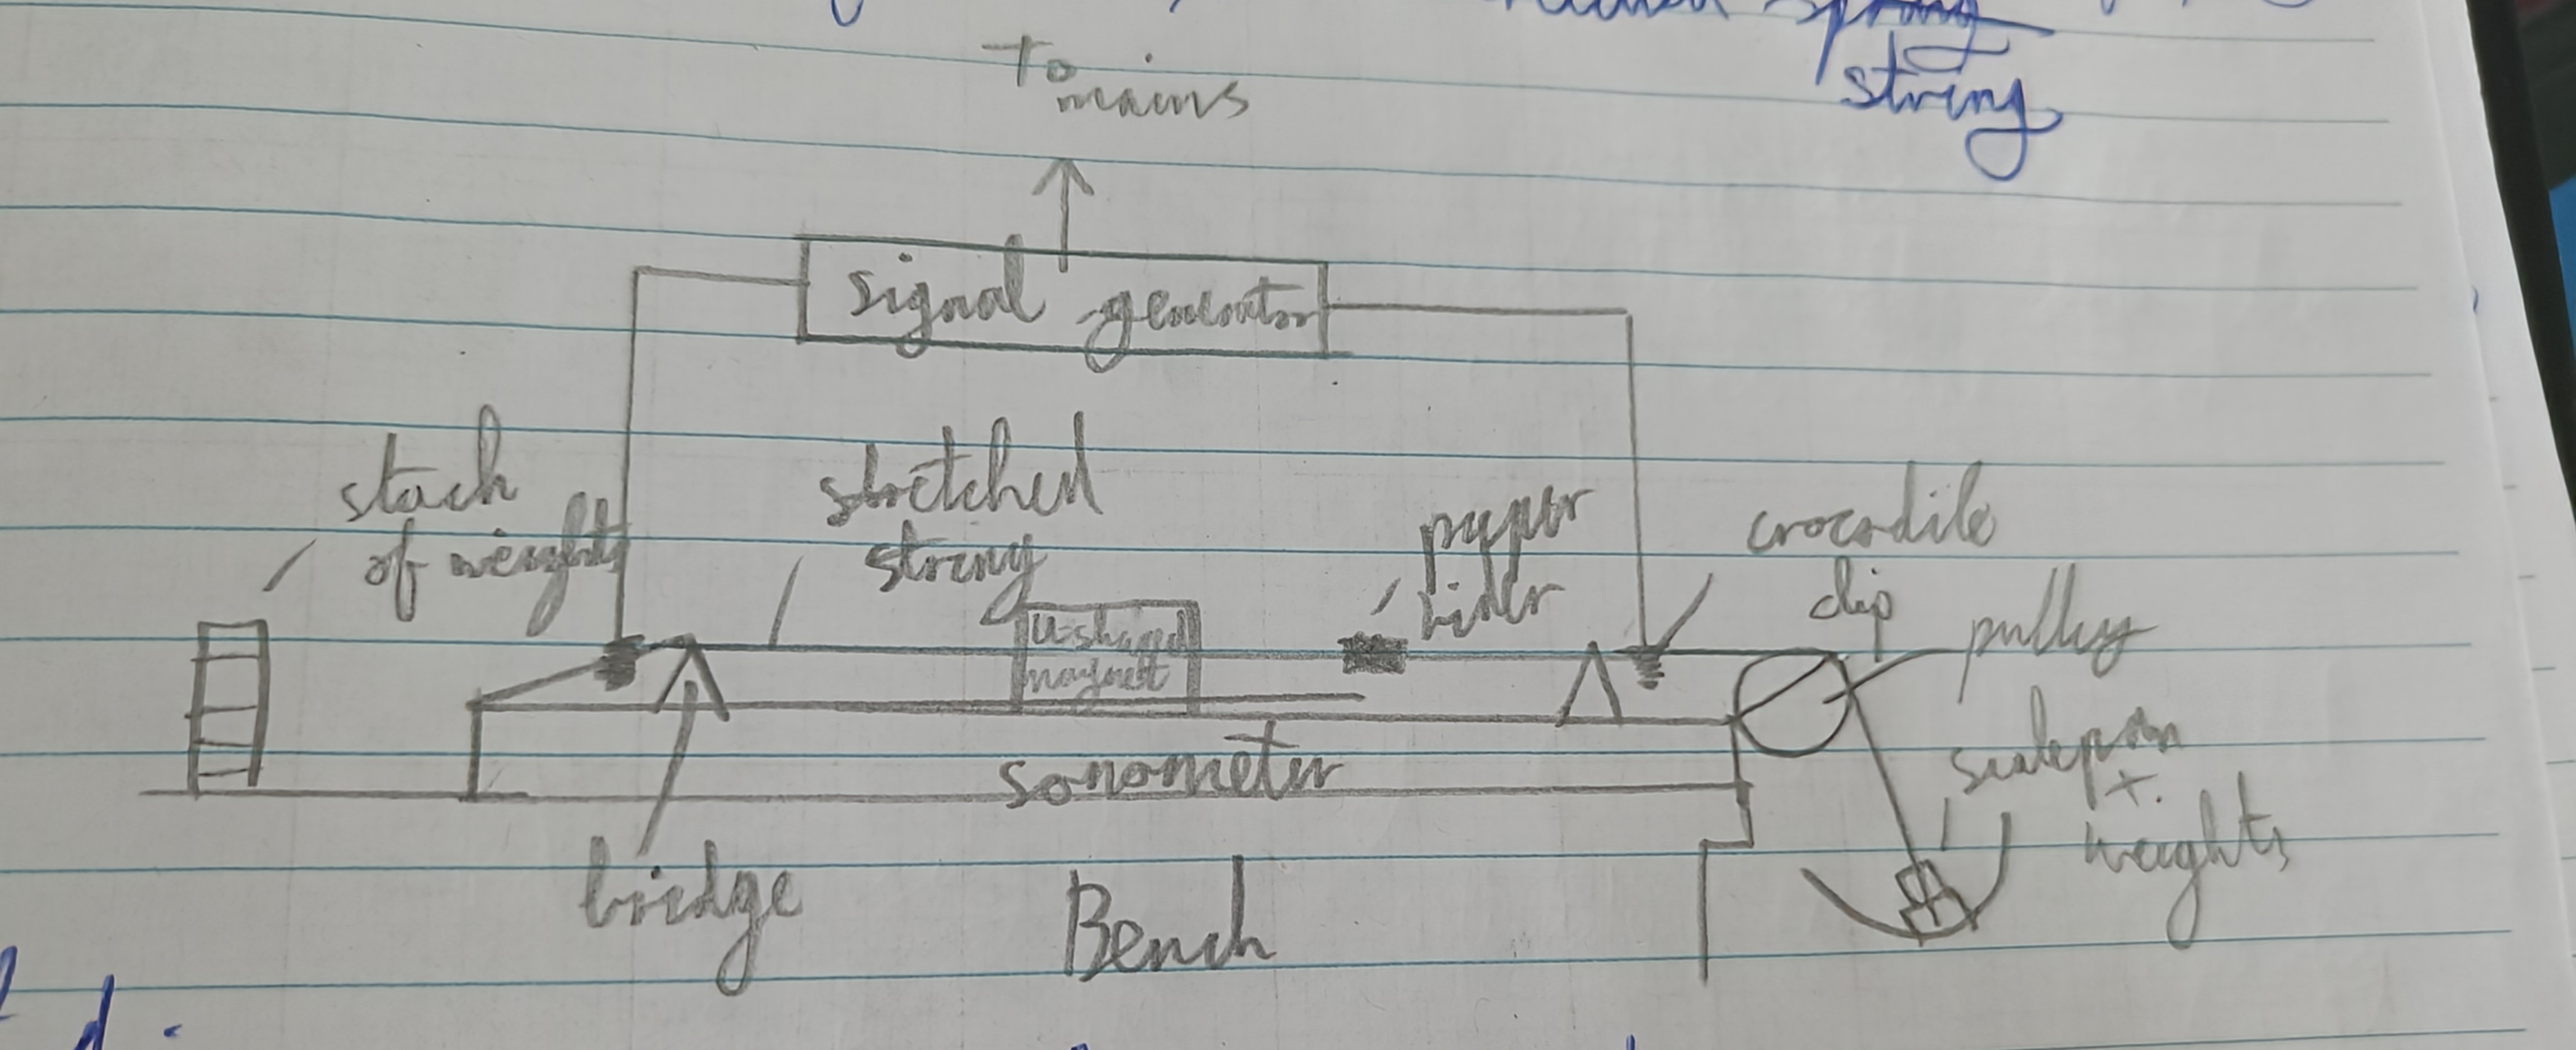 string
To
mains
signal generator
stach
of weights
stretched
string
paper
rider
crocodile
clip
pulley
U-shaped
magnet
scalepan
+
weights
sonometer
bridge
Bench